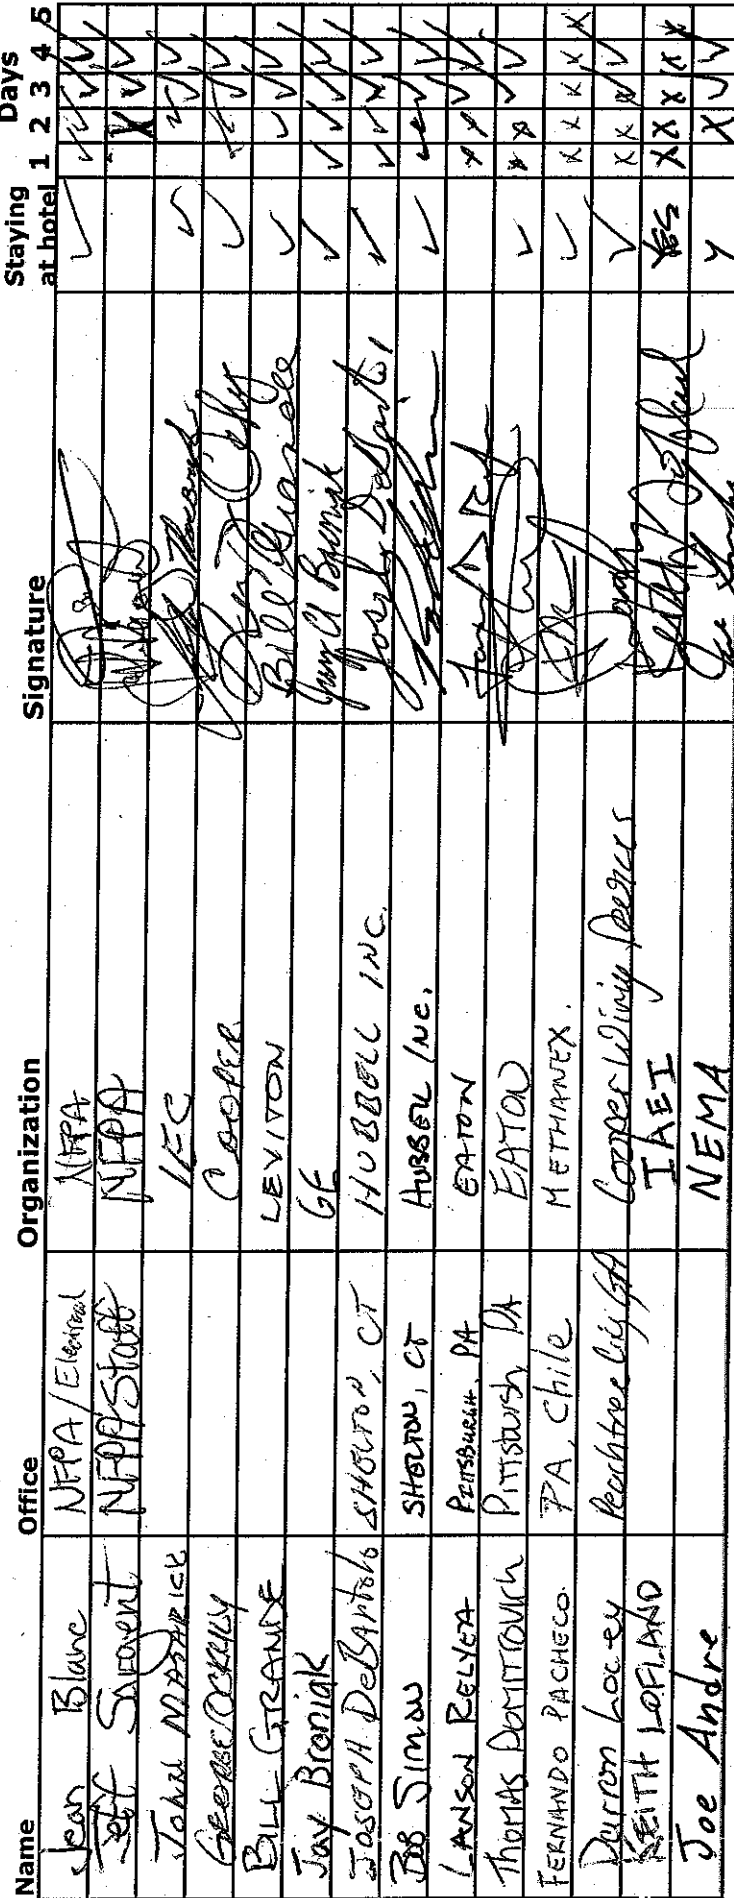 Name Office Organization Signature Staying at hotel Days 1 2 3 4 5
Jean Blanc NFPA/Electrical NFPA ✓ ✓ ✓ ✓ ✓
Jeff Sargent NFPA Staff NFPA X ✓ ✓ ✓
John MASARICK IEC ✓ ✓ ✓ ✓
GEORGE OCKULY COOPER ✓ X ✓ ✓
BILL GRANDE LEVITON Bill Grande ✓ ✓ ✓ ✓
Jay Broniak GE Jay A Broniak ✓ ✓ ✓ ✓ ✓
JOSEPH DeBartolo SHELTON, CT HUBBELL INC. Joseph DeBartolo ✓ ✓ ✓ X ✓
BOB SIMON SHELTON, CT HUBBELL INC. ✓ ✓ ✓ ✓ ✓
LANSON RELYEA PITTSBURGH, PA EATON X X ✓ ✓
THOMAS DOMITROVICH Pittsburgh PA EATON ✓ X X ✓ ✓
FERNANDO PACHECO. PA, Chile METHANEX. ✓ X X X X X
Darron Lacey Peachtree City GA Copper Wiring Devices ✓ X X ✓ ✓
KEITH LOFLAND IAEI Keith Lofland YES X X X X X
Joe Andre NEMA Y X ✓ ✓